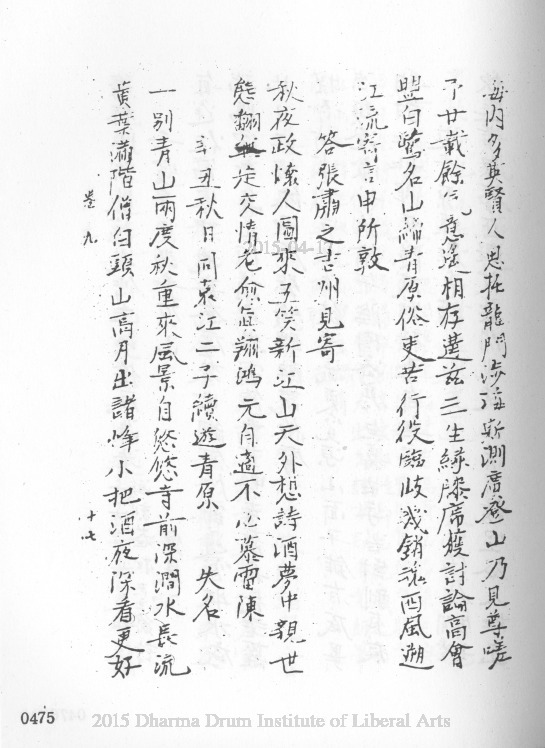 海内多英賢人思托龍門涉海斯測广登山乃見尊嗟
予廿載餘元意遥相存遘茲三生緣膝席獲討論高會
盟白鷺名山歸青原俗吏苦行役臨歧戔銷遠西風遡
江流寄言申所敦
答張肅之吉州見寄
秋夜政懷人圖來五笑新江山天外想詩酒夢中親世
態翻走交情老愈真翔鴻元自適不必慕雷陳
辛丑秋日同袁江二子續遊青原 失名
一別青山兩度秋重來風景自悠悠寺前深澗水長流
黃葉滿階僧白頭山高月出諸峰小把酒夜深看更好
卷九 十七
2015-04-1
0475
2015 Dharma Drum Institute of Liberal Arts